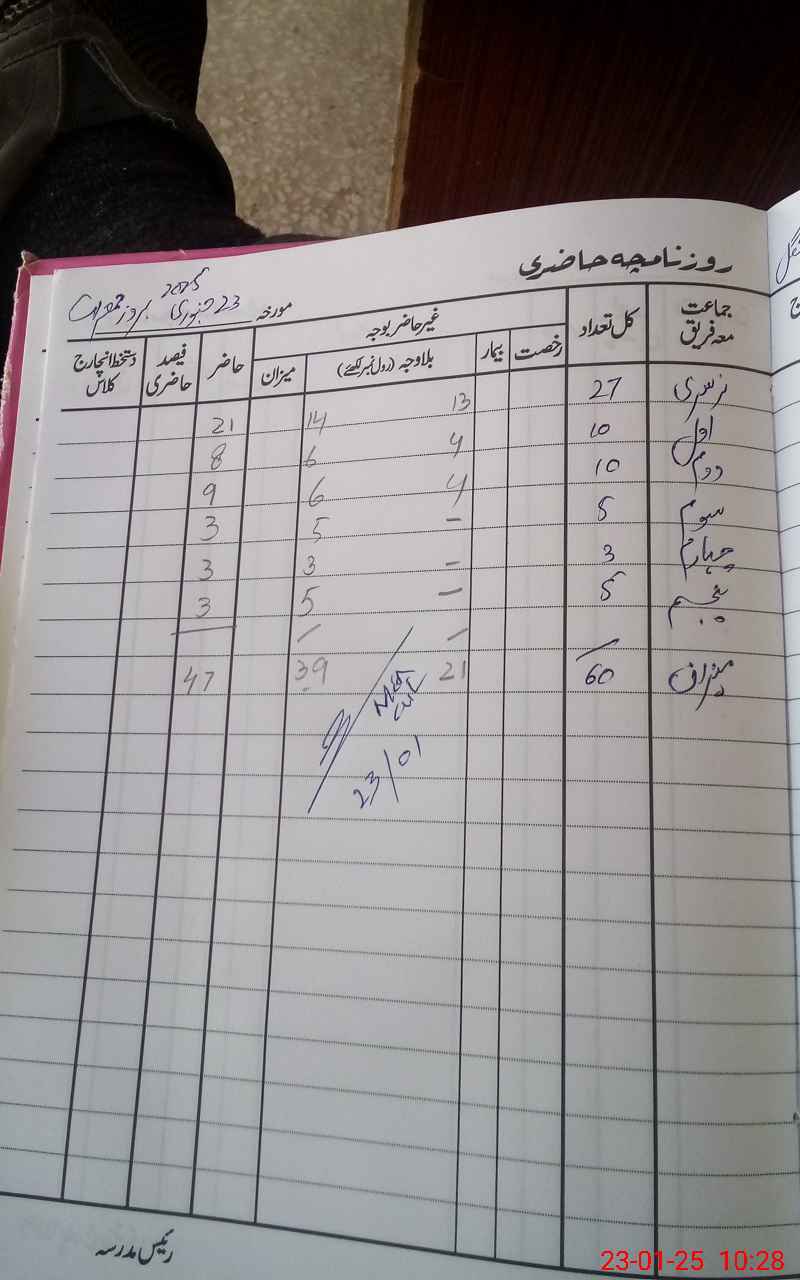 روزنامچہ حاضری
مورخہ 23 جنوری 2025 بروز جمعرات
جماعت معہ فریق کل تعداد غیر حاضر بوجہ حاضر فیصد حاضری دستخط انچارج کلاس
رخصت بیمار بلاوجہ (رول نمبر لکھئے) میزان
نرسری 27 13 14 21
اول 10 4 6 8
دوم 10 4 6 9
سوم 5 - 5 3
چہارم 3 - 3 3
پنجم 5 - 5 3
میزان 60 21 39 47
23/01
رئیس مدرسہ
23-01-25 10:28